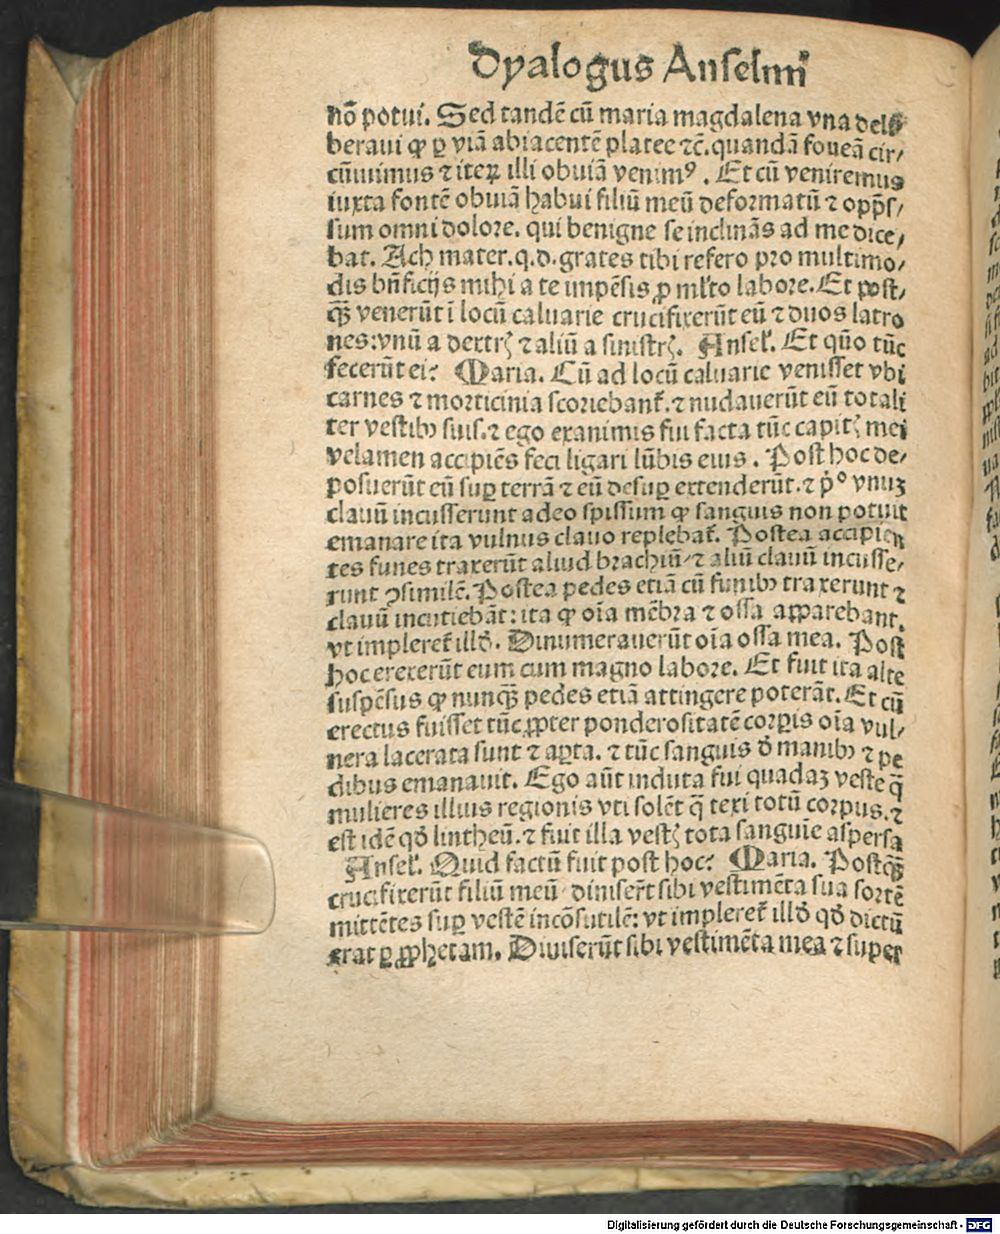 Dyalogus Anselmi
nō potui. Sed tandē cū maria magdalena vna deli
beraui ꝙ ꝑ viā abiacentē platee ⁊c̄. quandā foueā cir/
cūiuimus ⁊ iteꝝ illi obuiā venimꝰ. Et cū veniremus
iuxta fontē obuiā habui filiū meū deformatū ⁊ opp̄s/
sum omni dolore. qui benigne se inclinās ad me dice/
bat. Ach mater. q.d. grates tibi refero pro multimo/
dis bn̄ficijs mihi a te impēsis ꝓ ml̓to labore. Et post/
qȝ̄ venerūt ī locū caluarie crucifixerūt eū ⁊ duos latro
nes: vnū a dextrꝭ ⁊ aliū a sinistrꝭ. Ansel̓. Et quō tūc
fecerūt ei? Maria. Cū ad locū caluarie venisset vbi
carnes ⁊ morticinia scoriebant̄. ⁊ nudauerūt eū totali
ter vestibꝫ suis. ⁊ ego exanimis fui facta tūc capitꝭ mei
velamen accipiēs feci ligari lūbis eius. Post hoc de/
posuerūt eū suꝑ terrā ⁊ eū desuꝑ extenderūt. ⁊ p̄ͦ vnuꝫ
clauū incusserunt adeo spissum ꝙ sanguis non potuit
emanare ita vulnus clauo replebat̄. Postea accipien
tes funes traxerūt aliud brachiū ⁊ aliū clauū incusse/
runt ꝯsimilē. Postea pedes etiā cū funibꝫ traxerunt ⁊
clauū incutiebāt: ita ꝙ oīa mēbra ⁊ ossa apparebant.
vt impleret̄ illd̄. Dinumerauerūt oīa ossa mea. Post
hoc erexerūt eum cum magno labore. Et fuit ita alte
suspēsus ꝙ nunqȝ̄ pedes etiā attingere poterāt. Et cū
erectus fuisset tūc ꝓpter ponderositatē corꝑis oīa vul/
nera lacerata sunt ⁊ aꝑta. ⁊ tūc sanguis d̄ manibꝫ ⁊ pe
dibus emanauit. Ego aūt induta fui quadaꝫ veste q̄
mulieres illius regionis vti solēt q̄ texi totū corpus. ⁊
est idē qd̄ lintheū. ⁊ fuit illa vestꝭ tota sanguīe aspersa
Ansel̓. Quid factū fuit post hoc? Maria. Postqȝ̄
crucifixerūt filiū meū diuiser̄t sibi vestimēta sua sortē
mittētes suꝑ vestē incōsutilē: vt impleret̄ illd̄ qd̄ dictū
erat ꝑ ꝓphetam. Diuiserūt sibi vestimēta mea ⁊ super
Digitalisierung gefördert durch die Deutsche Forschungsgemeinschaft - DFG